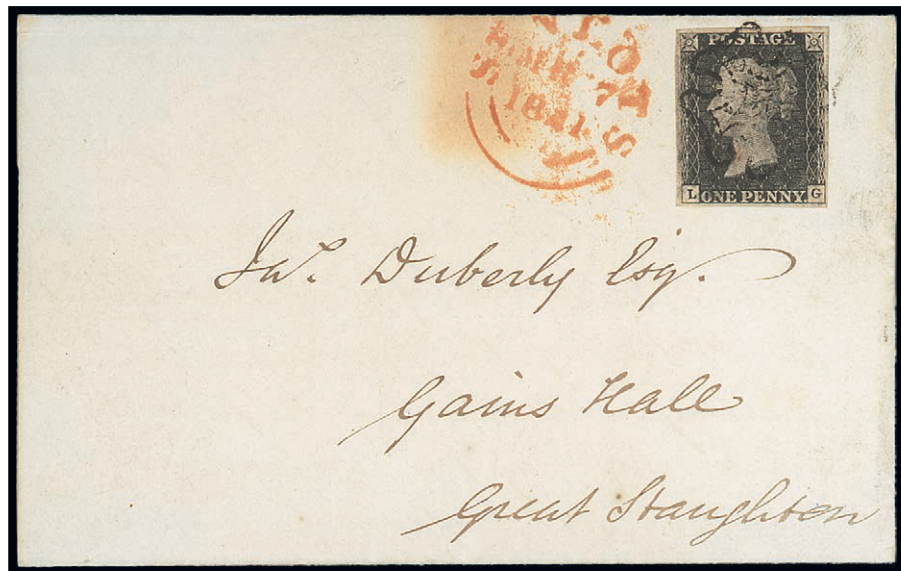 MR 7
1841
POSTAGE
L ONE PENNY G
Jas. Duberly Esq.
Gains Hall
Great Staughton